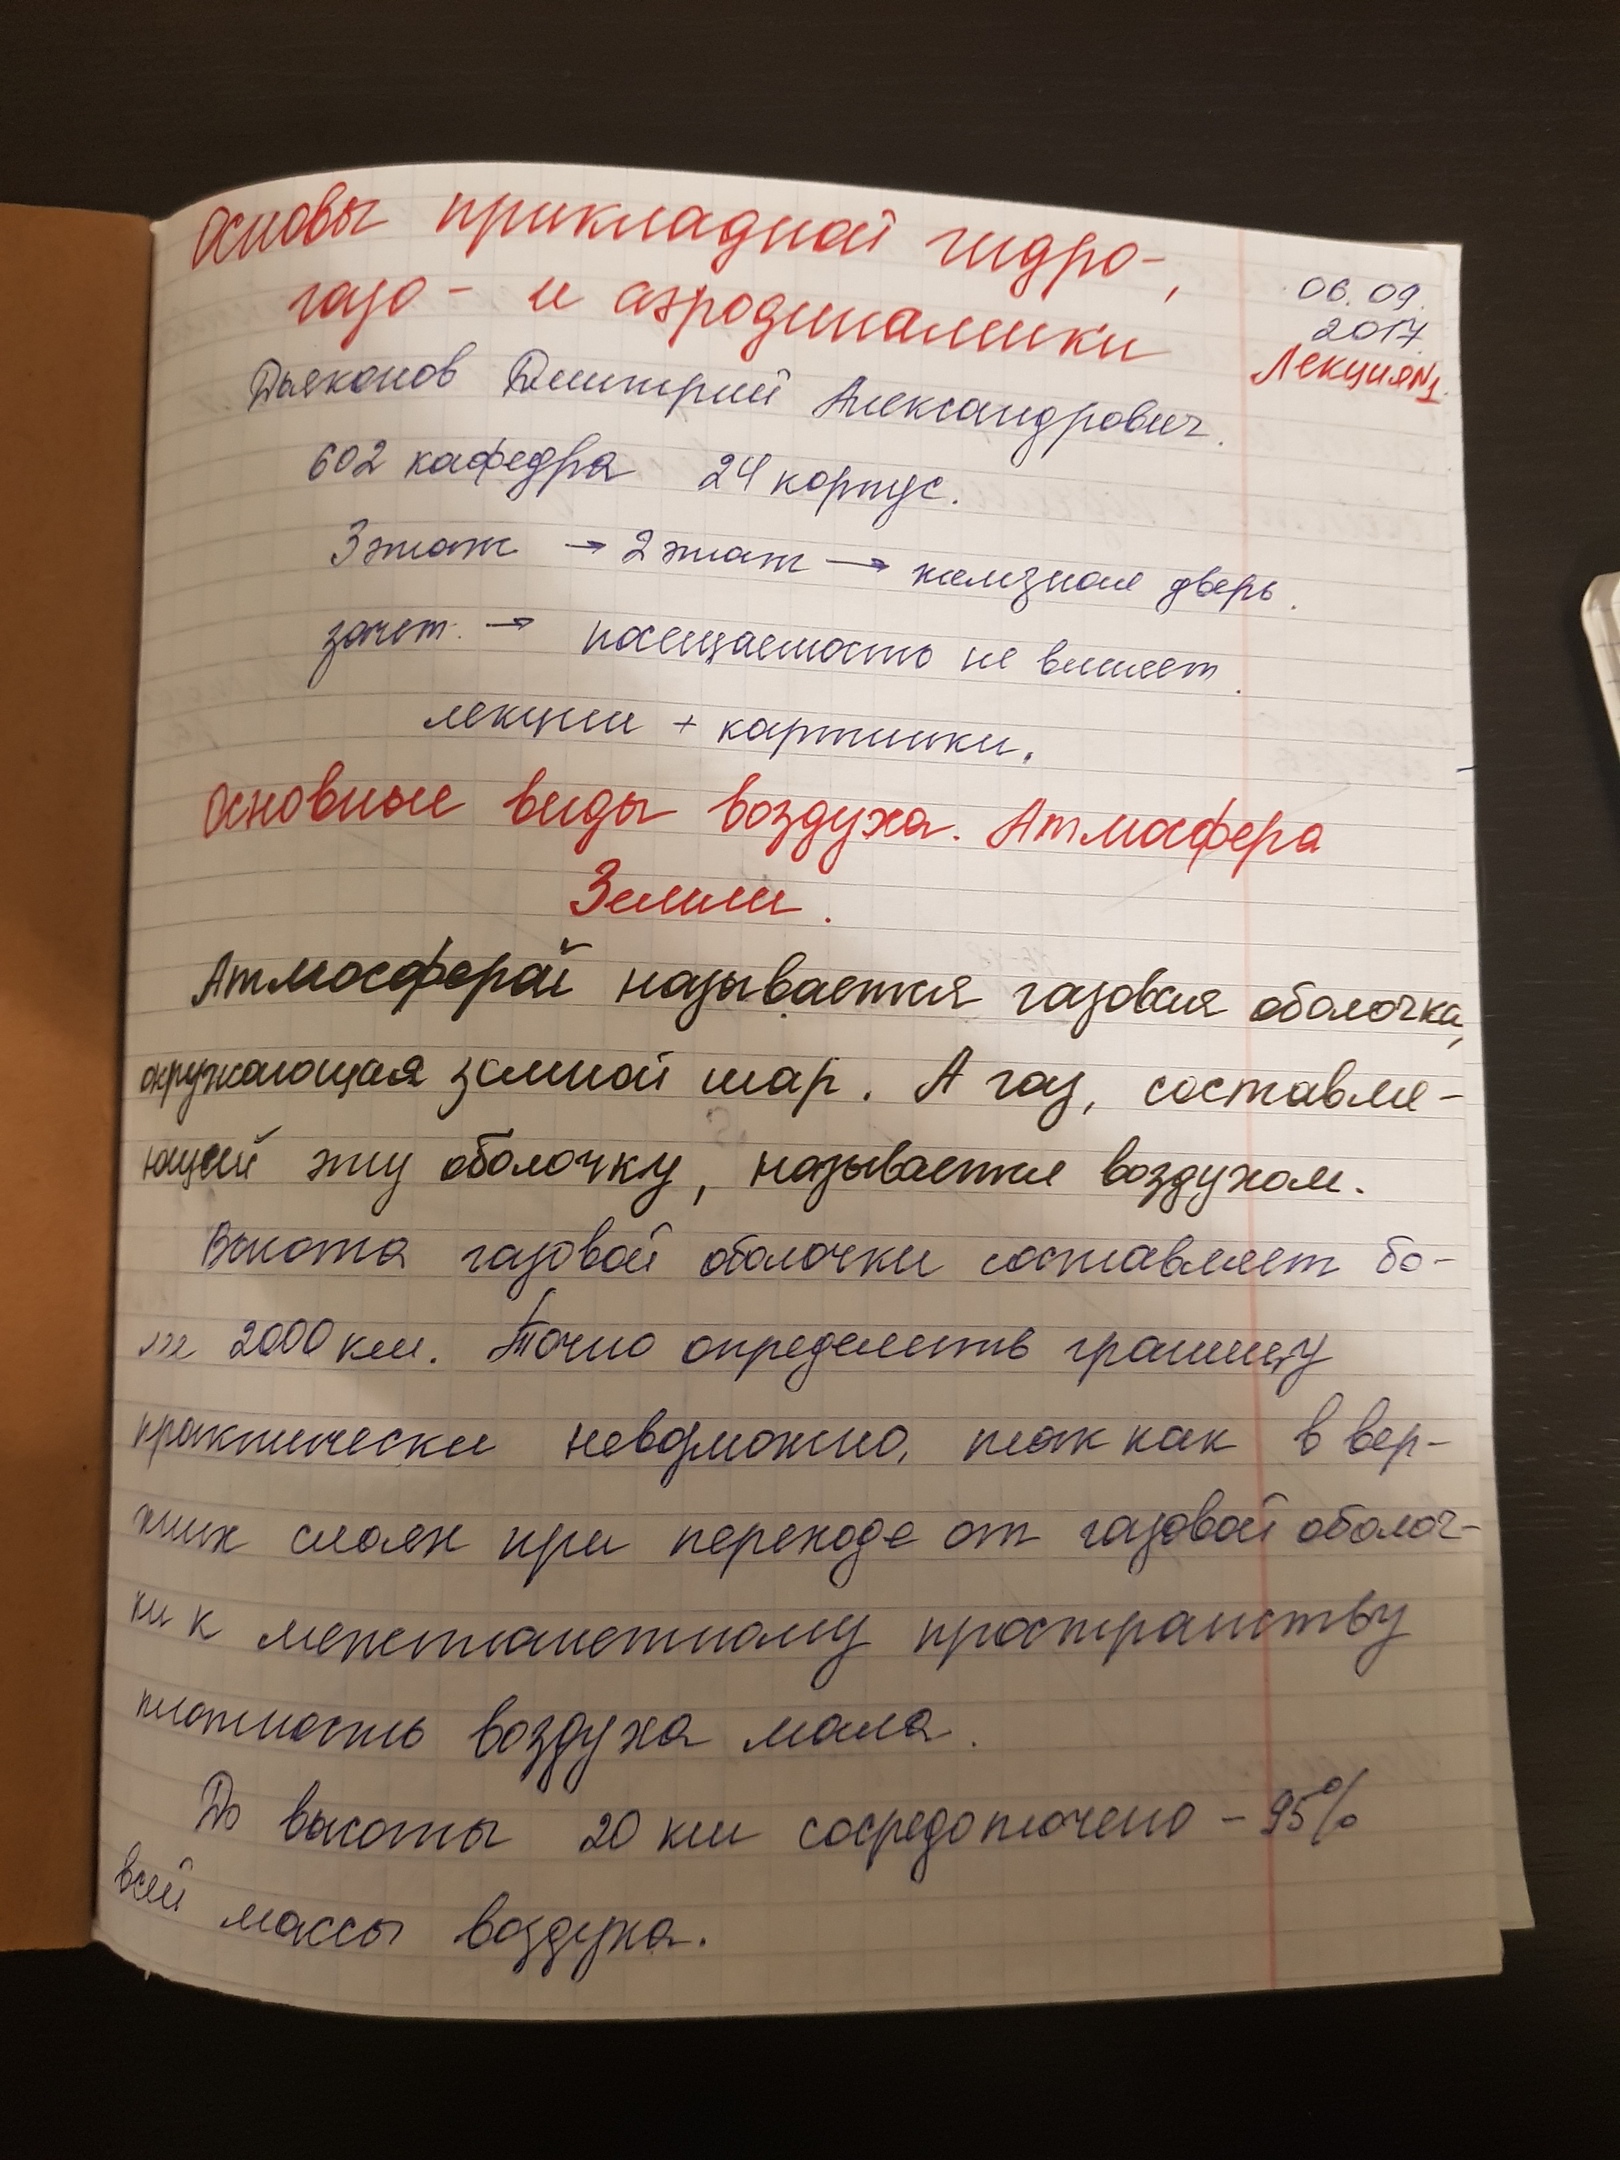 Основы прикладной гидро-,
газо- и аэродинамики
06.09.
2017
Лекция №1.
Дьяконов Дмитрий Александрович.
602 кафедра 24 корпус.
3 этаж → 2 этаж → железная дверь.
зачет. → посещаемость не влияет.
лекции + картинки.
Основные виды воздуха. Атмосфера
Земли.
Атмосферой называется газовая оболочка,
окружающая земной шар. А газ, составля-
ющей эту оболочку, называется воздухом.
Высота газовой оболочки составляет бо-
лее 2000 км. Точно определить границу
практически невозможно, так как в вер-
хних слоях при переходе от газовой оболоч-
ки к межпланетному пространству
плотность воздуха мала.
До высоты 20 км сосредоточено - 95%
всей массы воздуха.